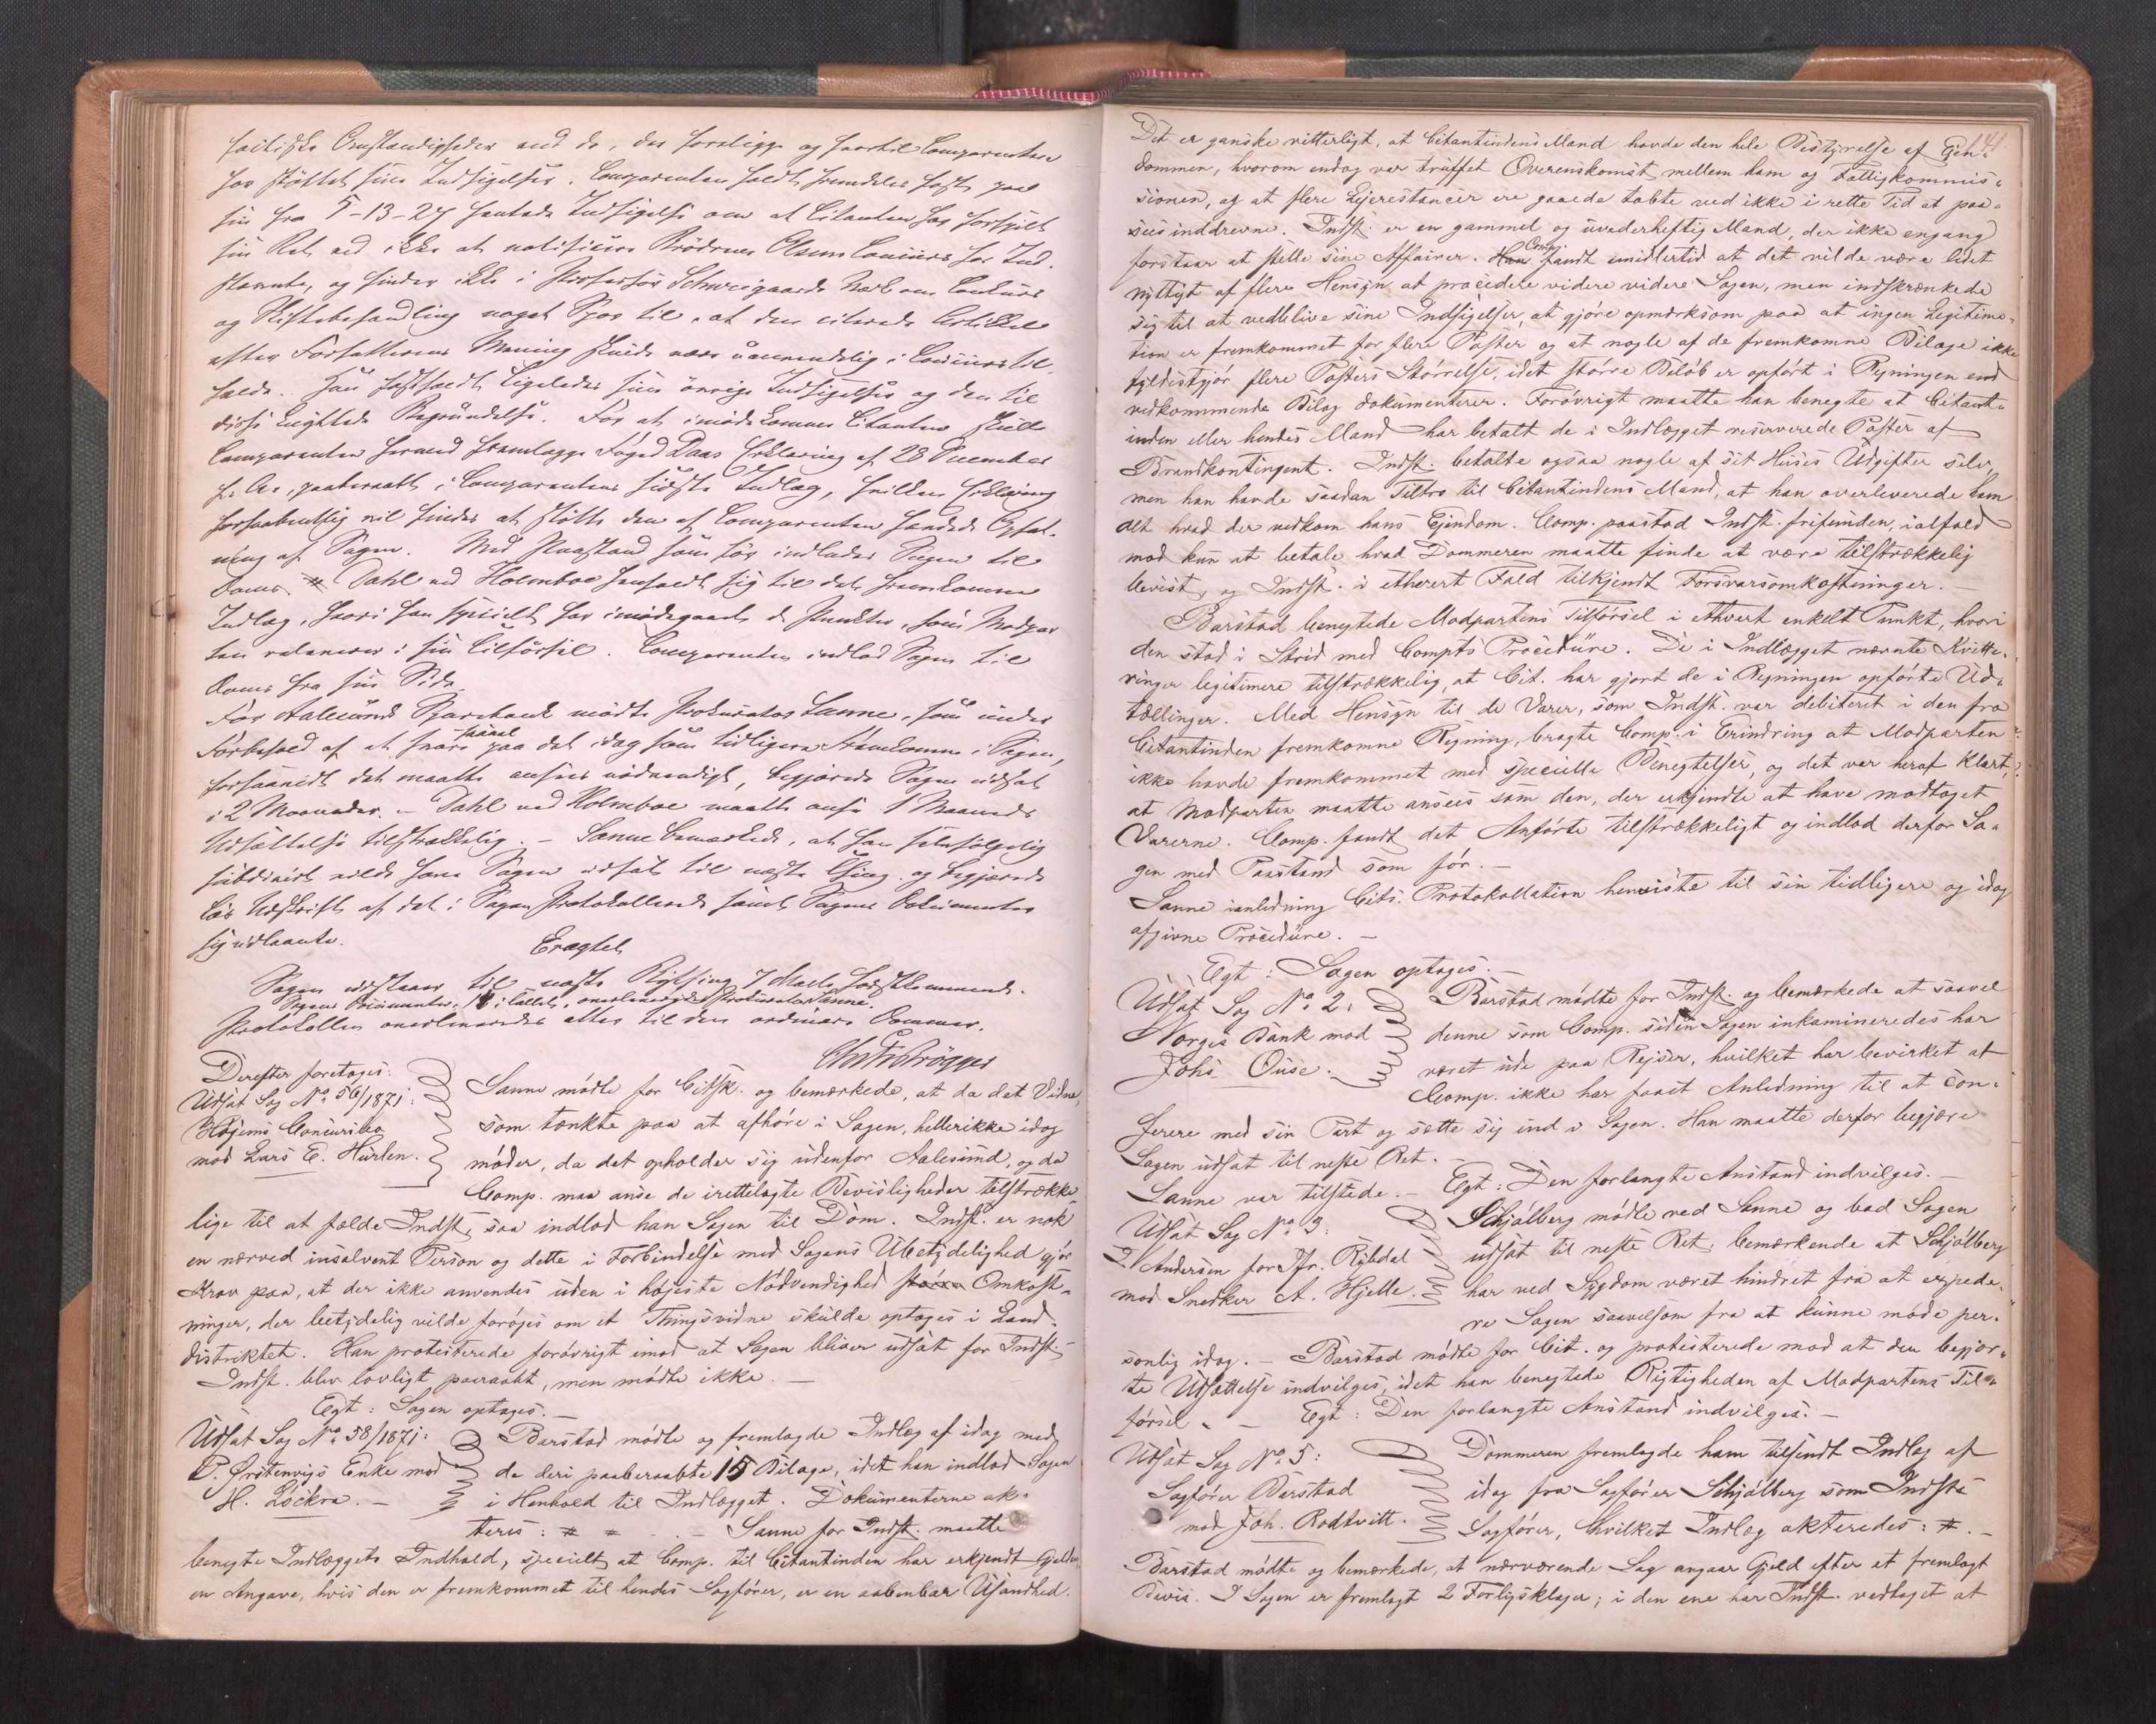 faktiske Omstændigheder end de, der foreligge og hvortil Comparenten
har støttet sine Indsigelser. Comparenten holdt fremdeles fast paa
sin fra 5-13-27 hentede Indsigelse om at Citanten har forspildt
sin Ret ved ikke at notificere Brødrene Olsens Concurs for Ind-
stævnte, og finder ikke i Professor Schweigaards Værk om Concurs
og Skiftebehandling noget Spor til, at den citerede Artikkel
efter Forfatterens Mening skulde være uanvendelig i Concurstil-
fælde. Han fastholdt ligeledes sine øvrige Indsigelser og den til
disse knyttede Begrundelse. For at imødekomme Citanten skulde
Comparenten herved fremlægge Foged Daas Erklæring af 28 December
f. A., paaberaabt i Comparentens sidste Indlæg, hvilken Erklæring
forhaabentlig vil findes at støtte den af Comparenten hævdede Opfat-
ning af Sagen. Med Paastand som før indlades Sagen til
Doms. # Dahl ved Holmboe henholdt sig til det fremkomne
Indlæg, hvori han specielt har imødegaaet de Punkter, som Modpar
ten relaterer i sin Tilførsel. Comparenten indlod Sagen til
Doms fra sin Side.
For Aalesunds Sparebank mødte Prokurator Sanne, som under
Forbehold af at svare paa det idag som tidligere Fremkomne i Sagen,
forsaavidt det maatte ansees nødvendigt, begjærede Sagen udsat
i 2 Maaneder. – Dahl ved Holmboe maatte anse 1 Maaneds
Udsættelse tilstrækkelig. – Sanne bemærkede, at han selvfølgelig
subsidiært vilde have Sagen udsat til næste Thing og begjærede
Udskrift af det i Sagen Protokollerede samt Sagens Dokumenter
sig udlaante.
Eragtet
Sagen udstaaer til næste Bything 7 Marts førstkommende.
Sagens Documenter, i Tallet, overleveredes Prokurator Sanne.
Protokollen overleveredes atter til den ordinære Dommer.
Chr Fr Brøgger
Derefter foretoges:
Udsat Sag No 56/1871:
Højems Concursbo
mod Lars E. Hurlen.
Sanne mødte for Citsk. og bemærkede, at da det Vidne,
som tænkte paa at afhøre i Sagen, hellerikke idag
møder, da det opholder sig udenfor Aalesund, og da
Comp. maa anse de irettelagte Bevisligheder tilstrække-
lige til at fælde Indst, saa indlod han Sagen til Dom. Indst. er nok
en nærved insolvent Person og dette i Forbindelse med Sagens Ubetydelighed gjør
Krav paa, at der ikke anvendes uden i højeste Nødvendighed større Omkost-
ninger, der betydelig vilde forøges om et Thingsvidne skulde optages i Land-
distriktet. Han protesterede forøvrigt imod at Sagen bliver udsat for Indst.
Indst. blev lovligt paaraabt, men mødte ikke. –
Egt: Sagen optages. –
Udsat Sag No 58/1871:
P. Ørstenvigs Enke mod
H. Løckra. –
Barstad mødte og fremlagde Indlæg af idag med
de deri paaberaabte 15 Bilage, idet han indlod Sagen
i Henhold til Indlægget. Dokumenterne ak-
teres: # # – . – Sanne for Indst. maatte
benegte Indlæggets Indhold, specielt at Comp. til Citantinden har erkjendt Gjelden
en Angave, hvis den er fremkommet til hendes Sagfører, er en aabenbar Usandhed.
141.
Det er ganske vitterligt, at Citantindens Mand havde den hele Bestyrelse af Ejen-
dommen, hvorom endog var truffet Overenskomst mellem ham og Fattigkommis-
sionen, og at flere Lejerestancer ere gaaede tabte ved ikke i rette Tid at paa-
sees inddrevne. Indst. er en gammel og uvederheftig Mand, der ikke engang
forstaar at stelle sine Affairer. Han Comp. fandt imidlertid at det vilde være lidet
nyttigt af flere Hensyn at procedere videre videre Sagen, men indskrænkede
sig til at vedblive sine Indsigelser, at gjøre opmærksom paa at ingen Legitima-
tion er fremkommet for flere Poster og at nogle af de fremkomne Bilage ikke
fyldestgjør flere Posters Størrelse, idet større Beløb er opført i Regningen end
vedkommende Bilag dokumenterer. Forøvrigt maatte han benegte at Citant-
inden eller hendes Mand har betalt de i Indlægget reserverede Poster af
Brandkontingent. Indst. betalte ogsaa nogle af sit Huses Udgifter selv,
men han havde saadan Tiltro til Citantindens Mand, at han overleverede ham
alt hvad der vedkom hans Ejendom. Comp. paastod Indst. frifunden, ialfald
mod kun at betale hvad Dommeren maatte finde at være tilstrækkelig
bevist, og Indst. i ethvert Fald tilkjendt Forsvarsomkostninger. –
Barstad benegtede Modpartens Tilførsel i ethvert enkelt Punkt, hvori
den stod i Strid med Compts Procedure. De i Indlægget nævnte Kvitte-
ringer legitimere tilstrækkelig, at Cit. har gjort de i Regningen opførte Ud-
tællinger. Med Hensyn til de Varer, som Indst. var debiteret i den fra
Citantinden fremkomne Regning, bragte Comp. i Erindring at Modparten
ikke havde fremkommet med specielle Benegtelser, og det var heraf klart,
at Modparten maatte ansees som den, der erkjendte at have modtaget
Varerne. Comp. fandt det Anførte tilstrækkeligt og indlod derfor Sa-
gen med Paastand som før. –
Sanne ianledning Cits. Protokollation henviste til sin tidligere og idag
afgivne Procedure. –
Egt: Sagen optages. –
Udsat Sag No 2:
Norges Bank mod
Johs Ouse.
Barstad mødte for Indst. og bemærkede at saavel
denne som Comp. siden Sagen inkamineredes har
været ude paa Rejser, hvilket har bevirket at
Comp. ikke har faaet Anledning til at con-
ferere med sin Part og sætte sig ind i Sagen. Han maatte derfor begjære
Sagen udsat til neste Ret. –
Sanne var tilstede. – Egt: Den forlangte Anstand indvilges. –
Udsat Sag No 3:
Andersen for Jfr. Rybdal
mod Snedker A. Hjelle.
Schjølberg mødte ved Sanne og bad Sagen
udsat til neste Ret, bemærkende at Schjølberg
har ved Sygdom været hindret fra at expede-
re Sagen saavelsom fra at kunne møde per-
sonlig idag. – Barstad mødte for Cit. og protesterede mod at den begjær-
te Udsættelse indvilges, idet han benegtede Rigtigheden af Modpartens Til-
førsel. – Egt: Den forlangte Anstand indvilges. –
Udsat Sag No 5:
Sagfører Barstad
mod Joh. Rodtvitt.
Dommeren fremlagde ham tilsendt Indlæg af
idag fra Sagfører Schjølberg som Indsts
Sagfører, hvilket Indlæg akteredes: #. –
Barstad mødte og bemærkede, at nærværende Sag angaar Gjeld efter et fremlagt
Bevis. I Sagen er fremlagt 2 Forligsklager; i den ene har Indst. vedtaget at